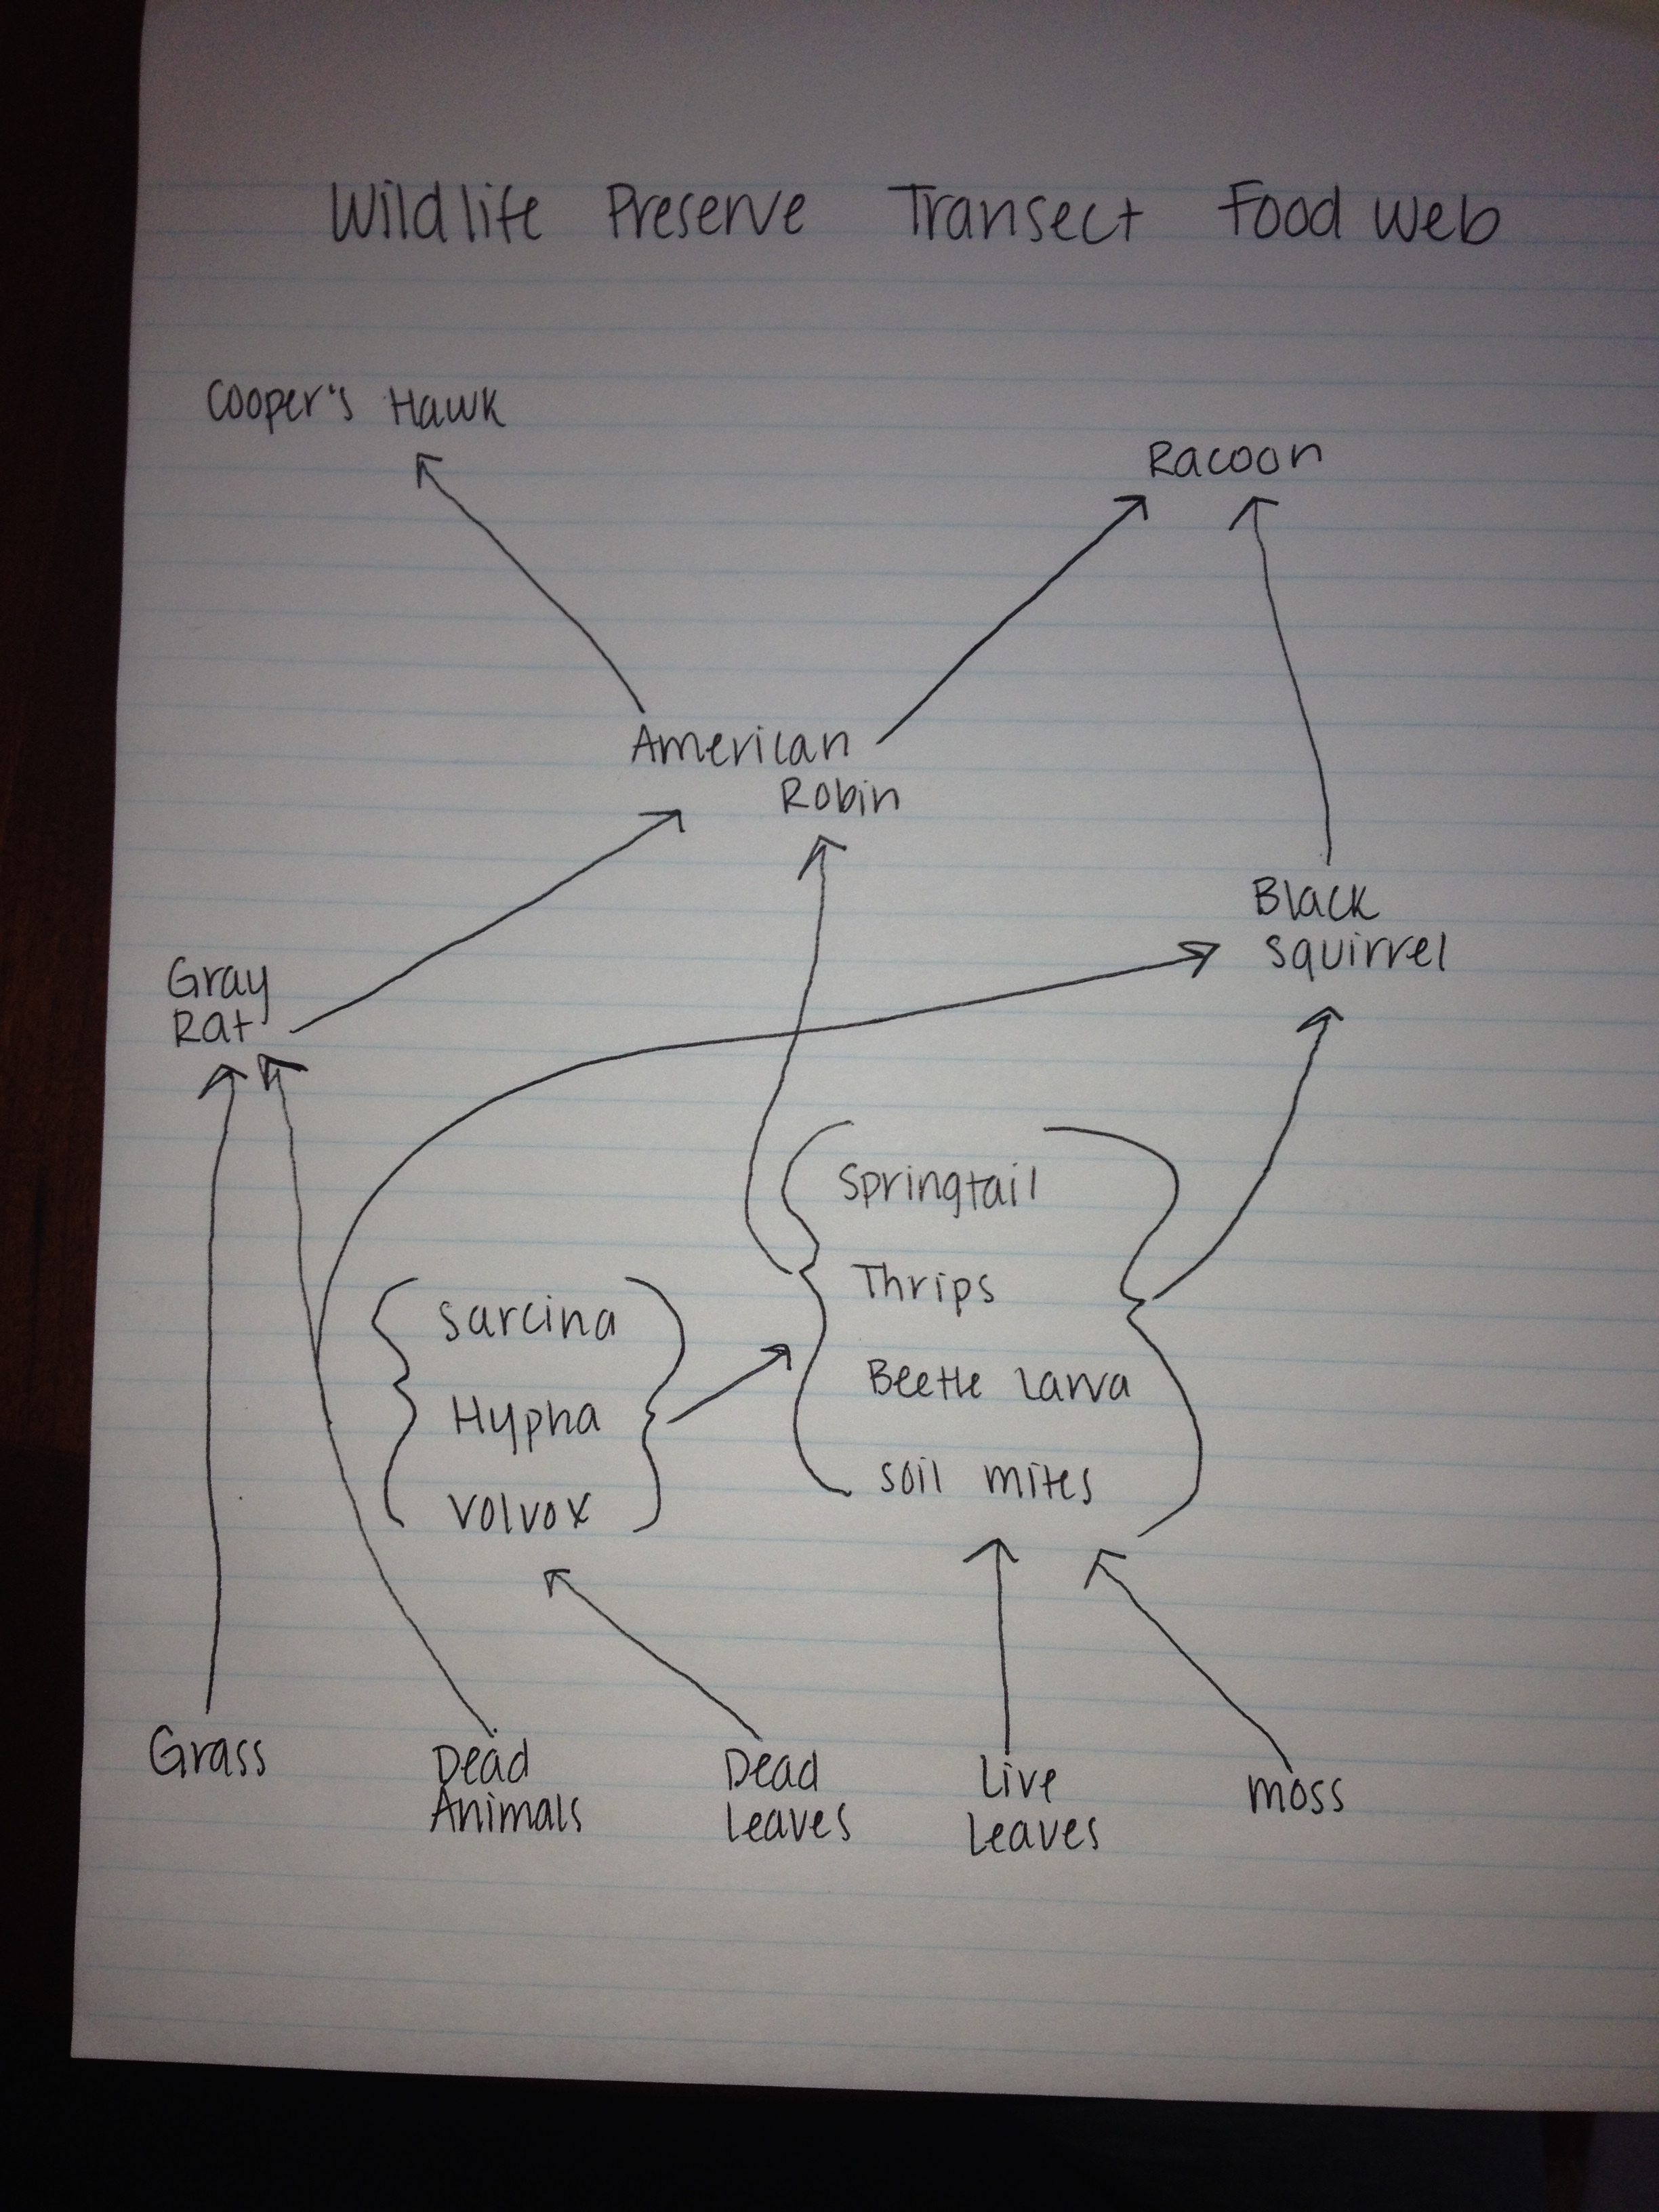 Wildlife Preserve Transect Food Web
Cooper's Hawk
Racoon
American
Robin
Black
Squirrel
Gray
Rat
Springtail
Thrips
Beetle Larva
Soil mites
Sarcina
Hypha
Volvox
Grass
Dead
Animals
Dead
Leaves
Live
Leaves
moss